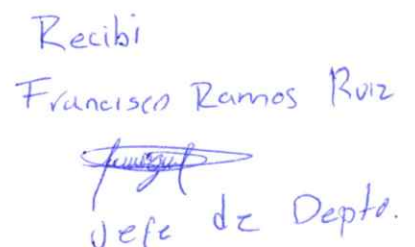 Recibi
Francisco Ramos Ruiz
Jefe de Depto.